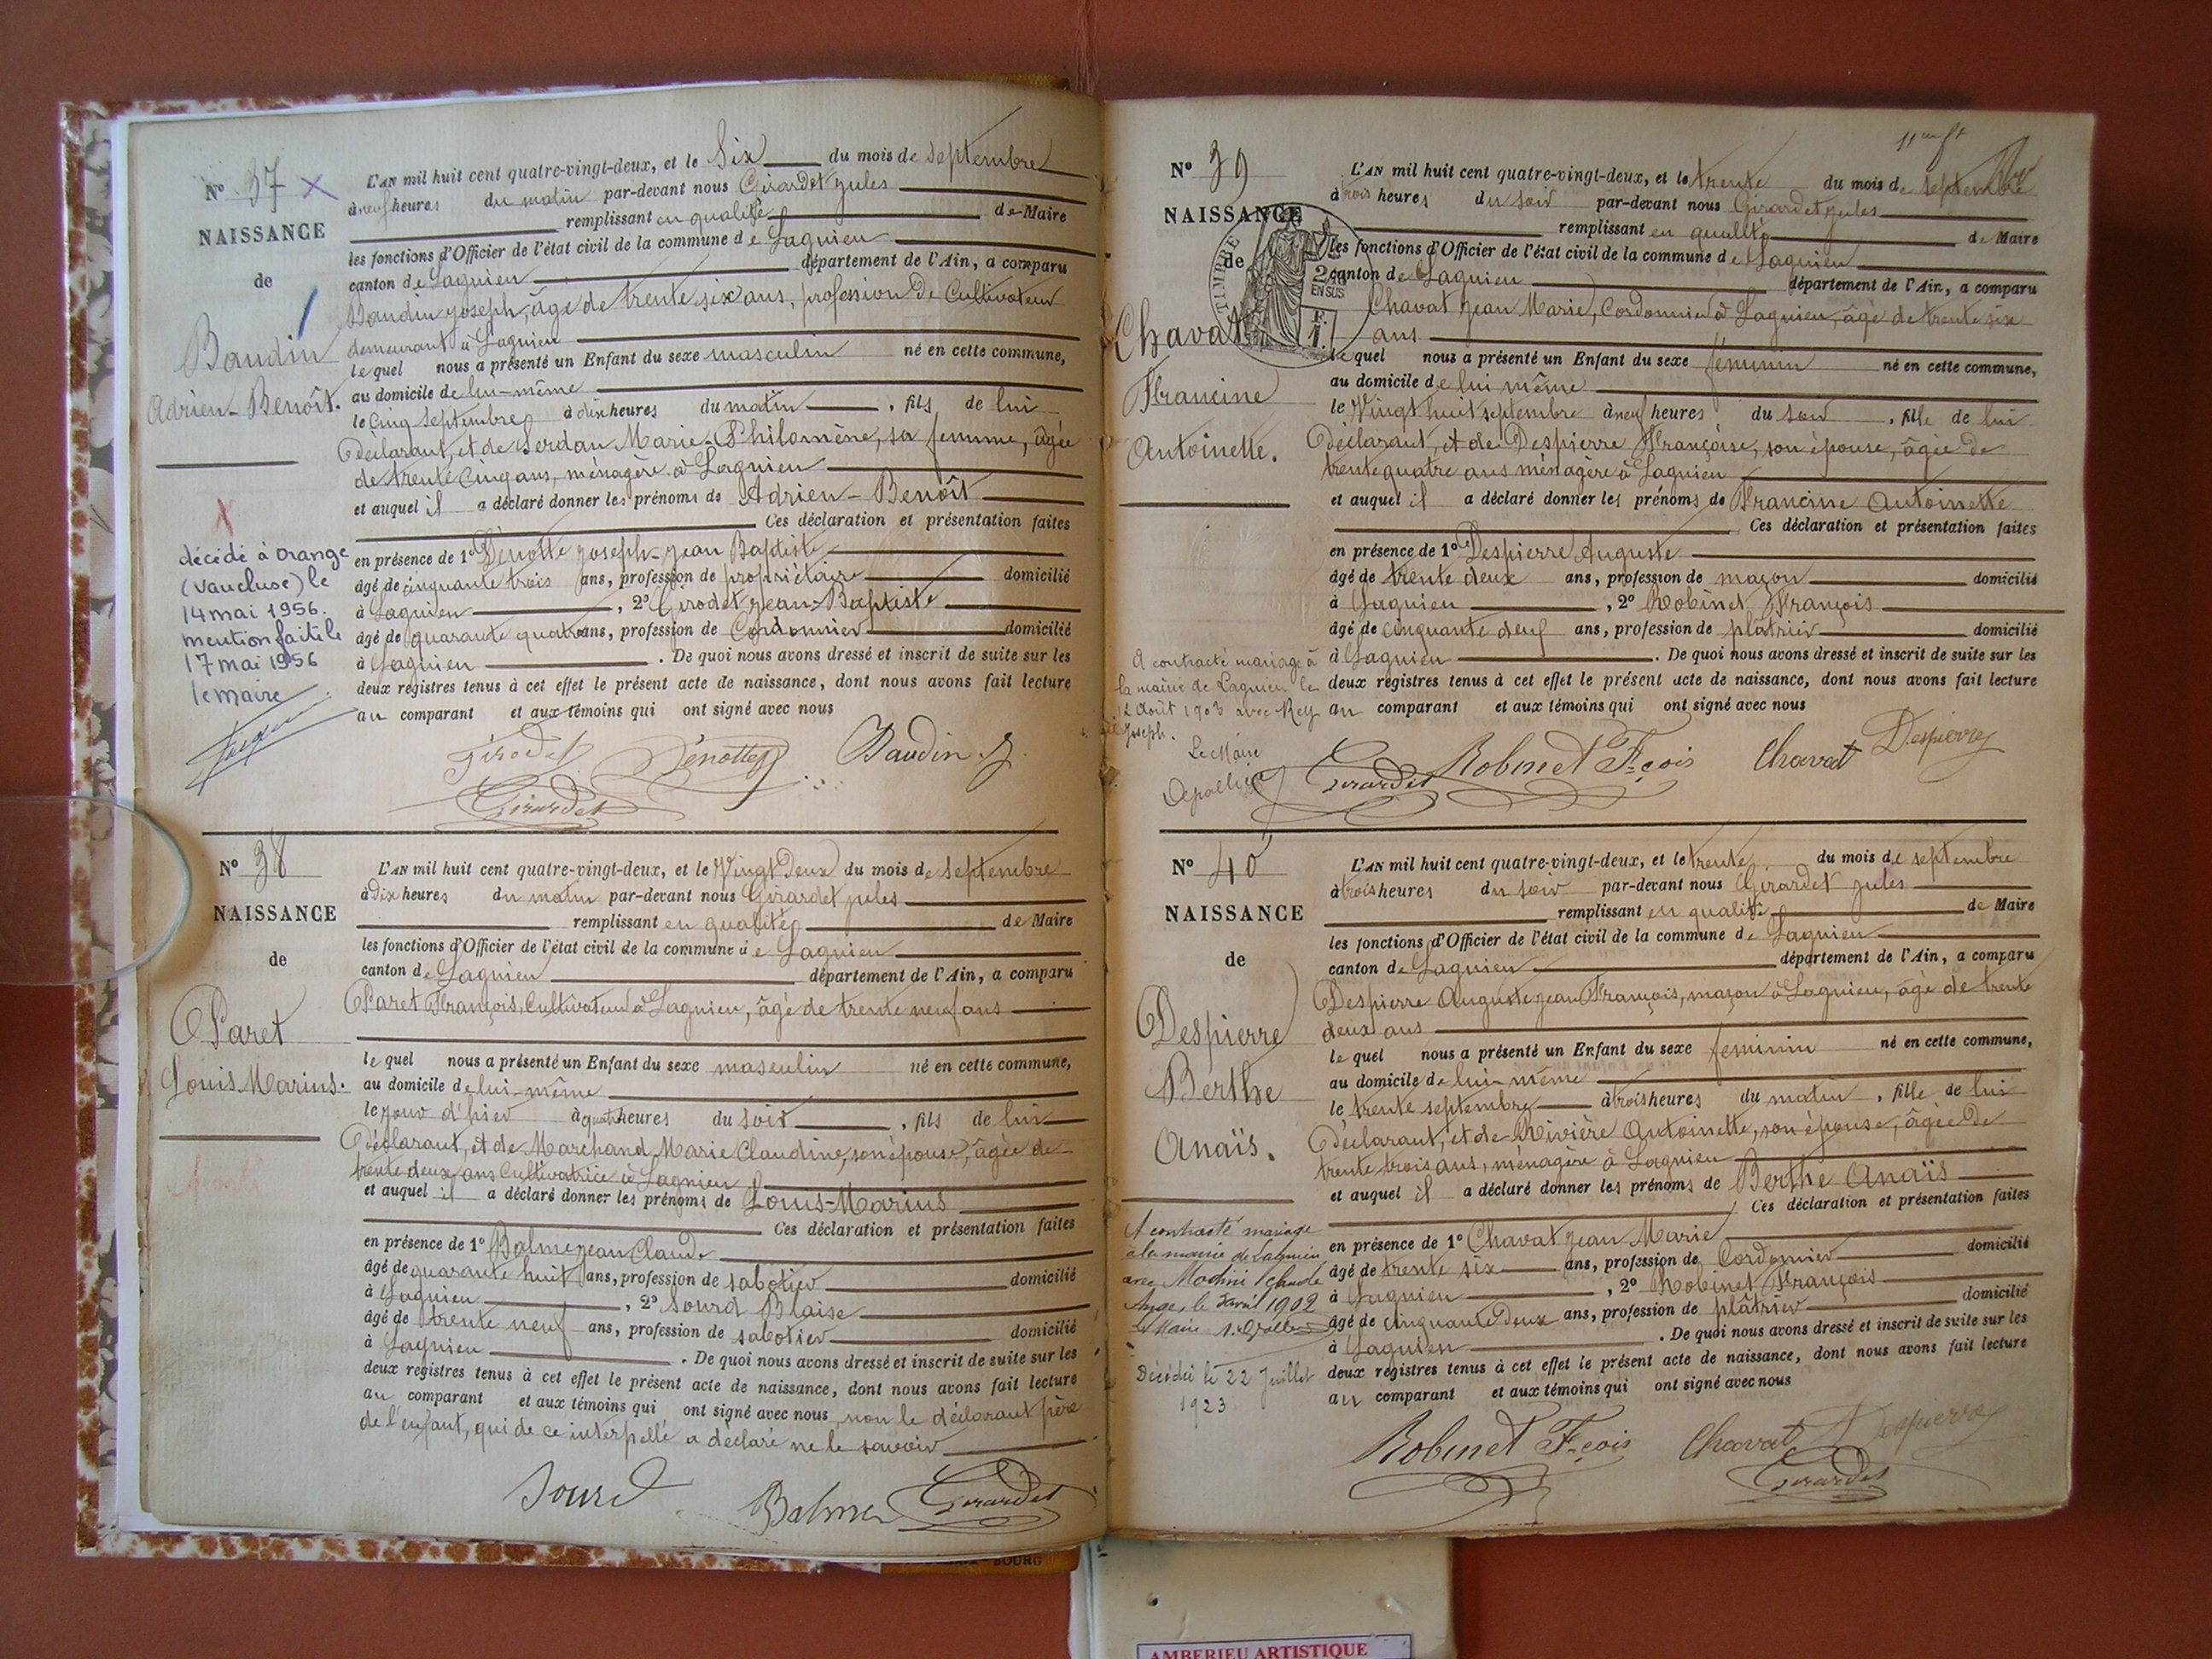 N° 37 X
NAISSANCE
de
Baudin
Adrien-Benoît.
X
décédé à Orange
(Vaucluse) le
14 mai 1956.
mention faite le
17 mai 1956
le maire
L'AN mil huit cent quatre-vingt-deux, et le Six du mois de septembre
à neuf heures du matin par-devant nous Girardet Jules
remplissant en qualité de Maire
les fonctions d'Officier de l'état civil de la commune de Lagnieu
canton de Lagnieu département de l'Ain, a comparu
Baudin Joseph, âgé de trente six ans, profession de Cultivateur
demeurant à Lagnieu
lequel nous a présenté un Enfant du sexe masculin né en cette commune,
au domicile de lui-même
le Cinq septembre à dix heures du matin, fils de lui
Déclarant, et de Serdan Marie-Philomène, sa femme, âgée
de trente cinq ans, ménagère à Lagnieu
et auquel il a déclaré donner les prénoms de Adrien-Benoît
Ces déclaration et présentation faites
en présence de 1° Dénotte Joseph-Jean Baptiste
âgé de cinquante trois ans, profession de propriétaire domicilié
à Lagnieu, 2° Girodet Jean-Baptiste
âgé de quarante quatre ans, profession de Cordonnier domicilié
à Lagnieu. De quoi nous avons dressé et inscrit de suite sur les
deux registres tenus à cet effet le présent acte de naissance, dont nous avons fait lecture
au comparant et aux témoins qui ont signé avec nous
Girodet Dénotte Baudin J.
Girardet
N° 38
NAISSANCE
de
Paret
Louis Marius.
L'AN mil huit cent quatre-vingt-deux, et le Vingt Deux du mois de septembre
à Dix heures du matin par-devant nous Girardet Jules
remplissant en qualité de Maire
les fonctions d'Officier de l'état civil de la commune de Lagnieu
canton de Lagnieu département de l'Ain, a comparu
Paret François, Cultivateur à Lagnieu, âgé de trente neuf ans
lequel nous a présenté un Enfant du sexe masculin né en cette commune,
au domicile de lui-même
le jour d'hier à quatre heures du soir, fils de lui
Déclarant, et de Marchand Marie Claudine, son épouse, âgée de
trente deux ans Cultivatrice à Lagnieu
et auquel il a déclaré donner les prénoms de Louis-Marius
Ces déclaration et présentation faites
en présence de 1° Balme Jean Claude
âgé de quarante huit ans, profession de sabotier domicilié
à Lagnieu, 2° Sourd Blaise
âgé de trente neuf ans, profession de sabotier domicilié
à Lagnieu. De quoi nous avons dressé et inscrit de suite sur les
deux registres tenus à cet effet le présent acte de naissance, dont nous avons fait lecture
au comparant et aux témoins qui ont signé avec nous, non le déclarant père
de l'enfant, qui de ce interpellé a déclaré ne le savoir
Sourd Balme Girardet
N° 39
NAISSANCE
de
TIMBRE
2/10
EN SUS
Chavat
Francine
Antoinette.
A contracté mariage à
la mairie de Lagnieu le
12 Août 1903 avec Rey
Joseph.
Le Maire
L'AN mil huit cent quatre-vingt-deux, et le trente du mois de septembre
à trois heures du soir par-devant nous Girardet Jules
remplissant en qualité de Maire
les fonctions d'Officier de l'état civil de la commune de Lagnieu
canton de Lagnieu département de l'Ain, a comparu
Chavat Jean Marie, Cordonnier à Lagnieu, âgé de trente six
ans
lequel nous a présenté un Enfant du sexe féminin né en cette commune,
au domicile de lui même
le Vingt huit septembre à neuf heures du soir, fille de lui
Déclarant, et de Despierre Françoise, son épouse, âgée de
trente quatre ans ménagère à Lagnieu
et auquel il a déclaré donner les prénoms de Francine Antoinette
Ces déclaration et présentation faites
en présence de 1° Despierre Auguste
âgé de trente deux ans, profession de maçon domicilié
à Lagnieu, 2° Robinet François
âgé de cinquante deux ans, profession de plâtrier domicilié
à Lagnieu. De quoi nous avons dressé et inscrit de suite sur les
deux registres tenus à cet effet le présent acte de naissance, dont nous avons fait lecture
au comparant et aux témoins qui ont signé avec nous
Girardet Robinet Fçois Chavat Despierre
N° 40
NAISSANCE
de
Despierre
Berthe
Anaïs.
A contracté mariage
à la mairie de Lagnieu
avec Modini
Ange, le avril 1902
Le Maire
Décédée le 22 Juillet
1923
L'AN mil huit cent quatre-vingt-deux, et le trente du mois de septembre
à trois heures du soir par-devant nous Girardet Jules
remplissant en qualité de Maire
les fonctions d'Officier de l'état civil de la commune de Lagnieu
canton de Lagnieu département de l'Ain, a comparu
Despierre Auguste Jean François, maçon à Lagnieu, âgé de trente
deux ans
lequel nous a présenté un Enfant du sexe féminin né en cette commune,
au domicile de lui-même
le trente septembre à trois heures du matin, fille de lui
Déclarant, et de Rivière Antoinette, son épouse, âgée de
trente trois ans, ménagère à Lagnieu
et auquel il a déclaré donner les prénoms de Berthe Anaïs
Ces déclaration et présentation faites
en présence de 1° Chavat Jean Marie
âgé de trente six ans, profession de Cordonnier domicilié
à Lagnieu, 2° Robinet François
âgé de cinquante Deux ans, profession de plâtrier domicilié
à Lagnieu. De quoi nous avons dressé et inscrit de suite sur les
deux registres tenus à cet effet le présent acte de naissance, dont nous avons fait lecture
au comparant et aux témoins qui ont signé avec nous
Robinet Fçois Chavat Despierre
Girardet
BOURG
AMBERIEU ARTISTIQUE